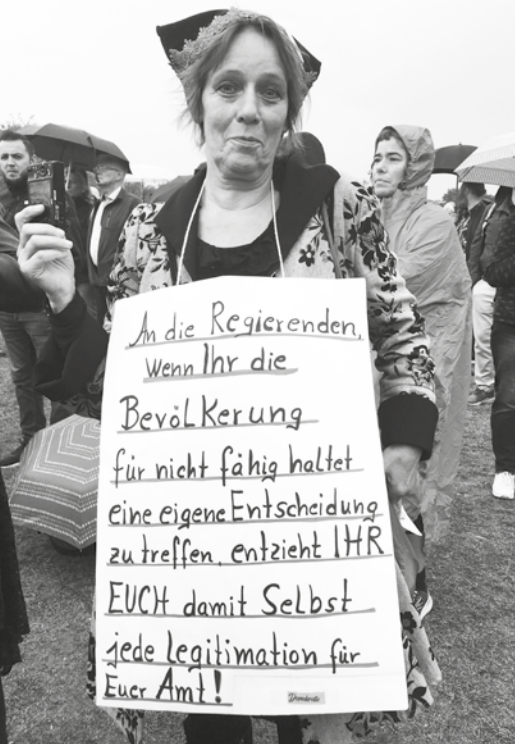 An die Regierenden,
Wenn Ihr die
Bevölkerung
für nicht fähig haltet
eine eigene Entscheidung
zu treffen, entzieht IHR
EUCH damit Selbst
jede Legitimation für
Euer Amt!
Demokratie